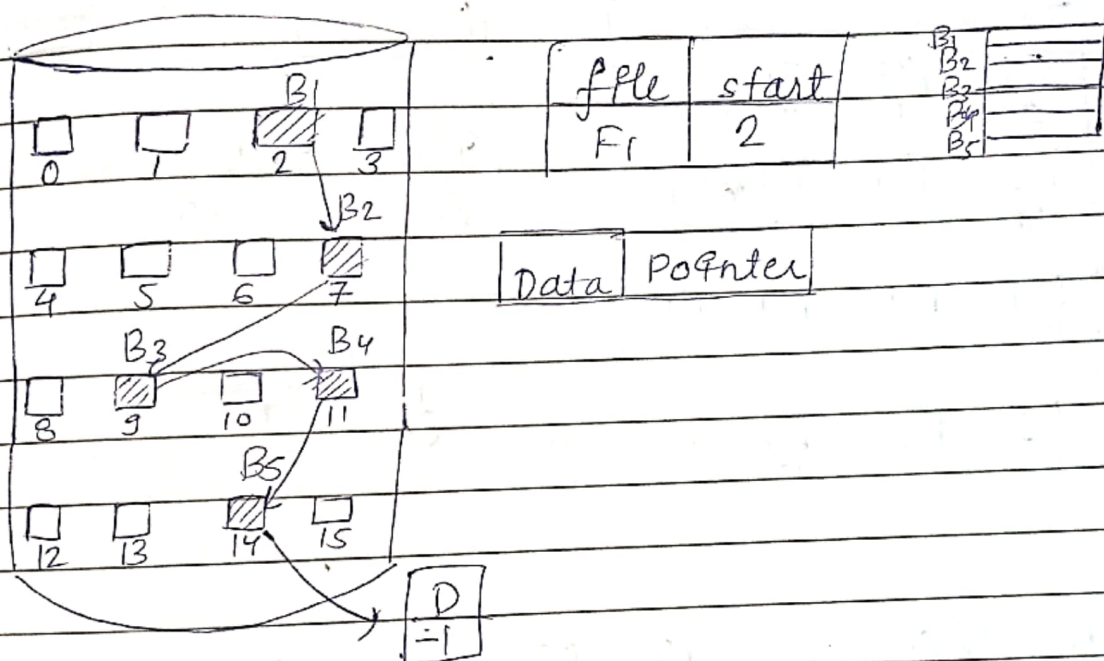 B1
0 1 2 3
B2
4 5 6 7
B3 B4
8 9 10 11
B5
12 13 14 15
D
-1
file start
F1 2
B1
B2
B3
B4
B5
Data Pointer